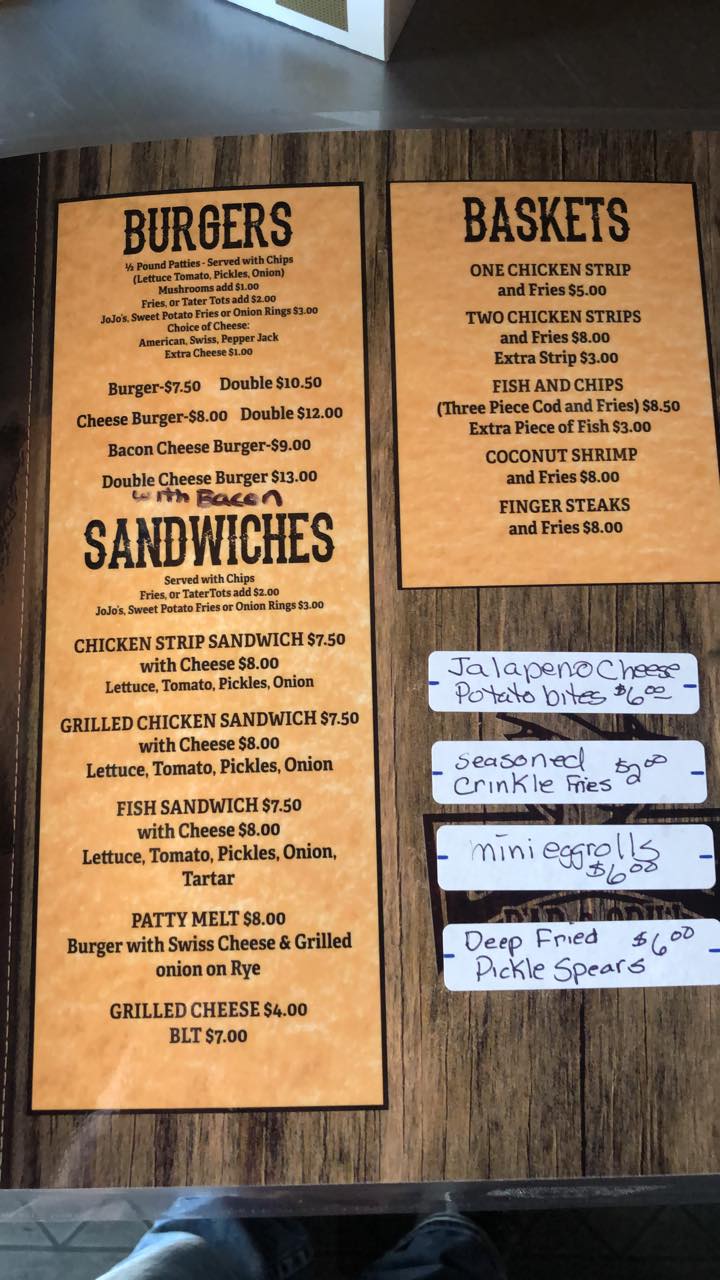 BURGERS
½ Pound Patties - Served with Chips
(Lettuce Tomato, Pickles, Onion)
Mushrooms add $1.00
Fries, or Tater Tots add $2.00
JoJo's, Sweet Potato Fries or Onion Rings $3.00
Choice of Cheese:
American, Swiss, Pepper Jack
Extra Cheese $1.00
Burger-$7.50 Double $10.50
Cheese Burger-$8.00 Double $12.00
Bacon Cheese Burger-$9.00
Double Cheese Burger $13.00
with Bacon
SANDWICHES
Served with Chips
Fries, or TaterTots add $2.00
JoJo's, Sweet Potato Fries or Onion Rings $3.00
CHICKEN STRIP SANDWICH $7.50
with Cheese $8.00
Lettuce, Tomato, Pickles, Onion
GRILLED CHICKEN SANDWICH $7.50
with Cheese $8.00
Lettuce, Tomato, Pickles, Onion
FISH SANDWICH $7.50
with Cheese $8.00
Lettuce, Tomato, Pickles, Onion,
Tartar
PATTY MELT $8.00
Burger with Swiss Cheese & Grilled
onion on Rye
GRILLED CHEESE $4.00
BLT $7.00
BASKETS
ONE CHICKEN STRIP
and Fries $5.00
TWO CHICKEN STRIPS
and Fries $8.00
Extra Strip $3.00
FISH AND CHIPS
(Three Piece Cod and Fries) $8.50
Extra Piece of Fish $3.00
COCONUT SHRIMP
and Fries $8.00
FINGER STEAKS
and Fries $8.00
Jalapeno Cheese
Potato bites $6.00
Seasoned $2.00
Crinkle Fries
mini eggrolls
$6.00
Deep Fried $6.00
Pickle Spears